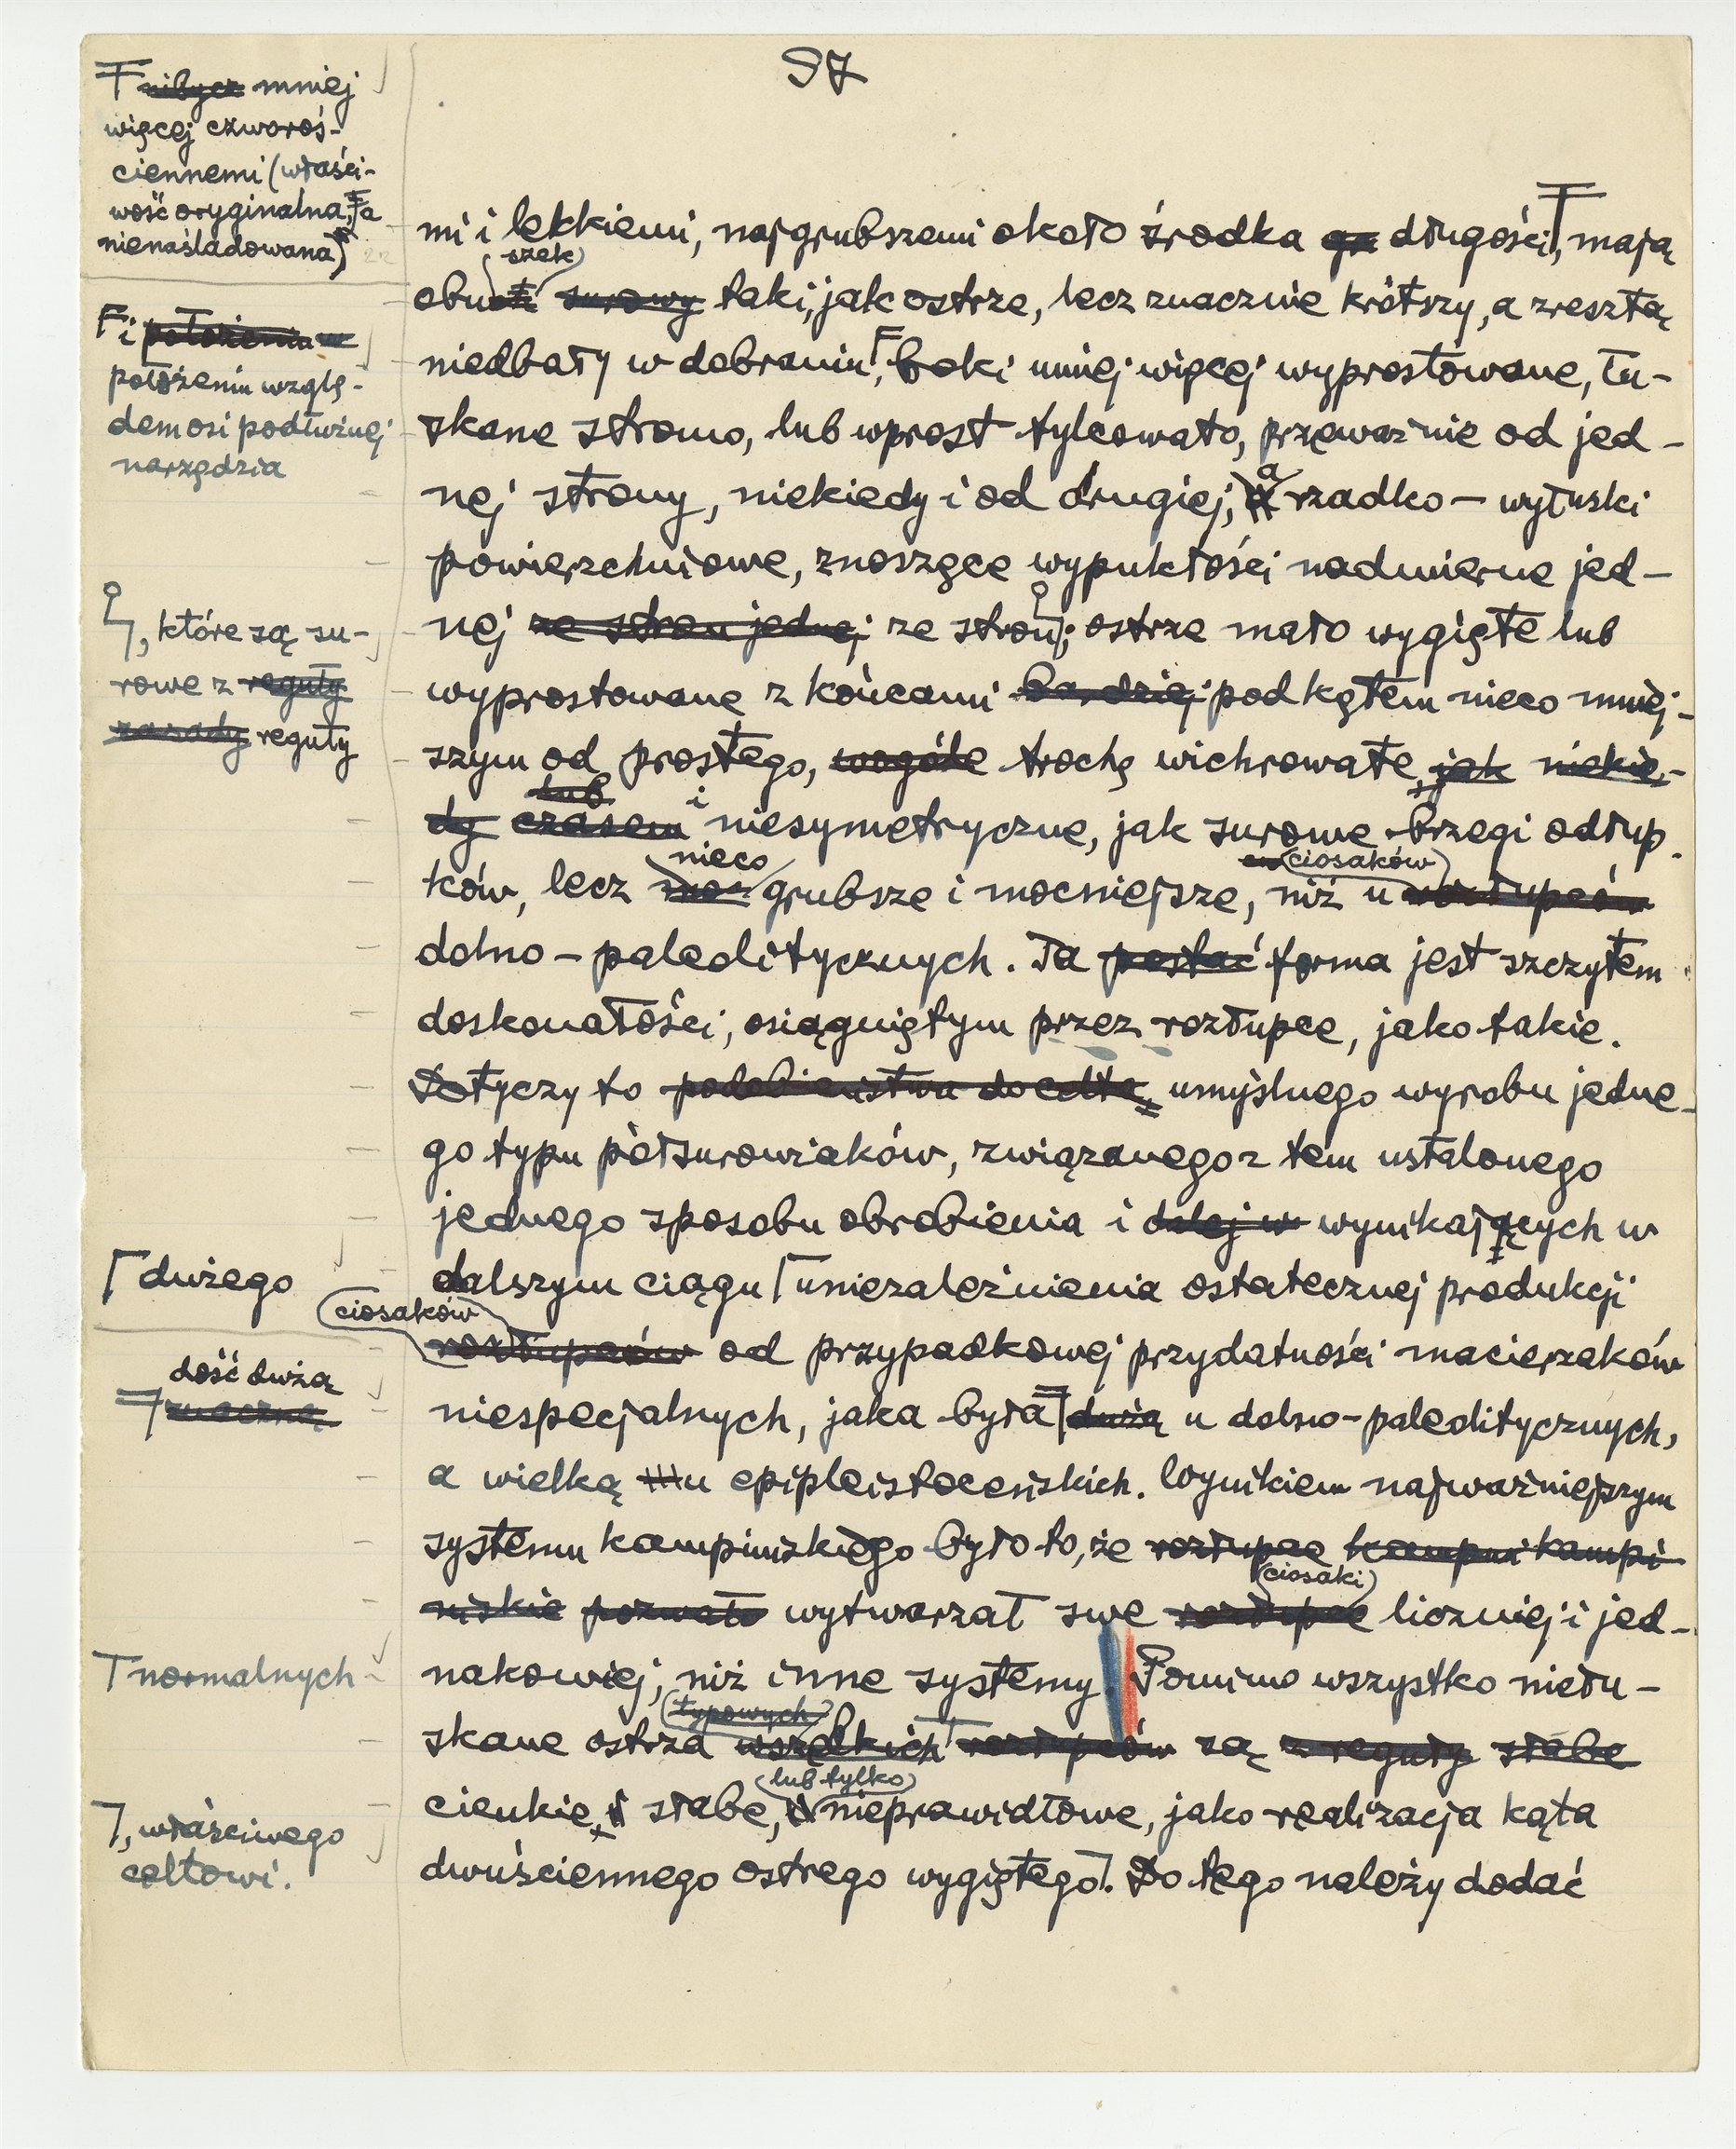 97
mniej
więcej czworoś-
ciennemi (właści-
wość oryginalna, a
nienaśladowana)
i położeniu w
położeniu wzglę-
dem osi podłużnej
narzędzia
, które są su-
rowe z reguły
zasady reguły
dużego
ciosaków
dość dużą
znaczną
normalnych
, właściwego
celtowi.
mi i lekkiemi, najgrubszemi około środka długości, mają
szek
obu surowy taki, jak ostrze, lecz znacznie krótszy, a zresztą
niedbały w dobraniu, boki mniej więcej wyprostowane, łu-
skane stromo, lub wprost tylcowato, przeważnie od jed-
nej strony, niekiedy i od drugiej, a rzadko – wyłuski
powierzchniowe, znoszące wypukłości nadmierne jed-
nej ze stron jednej ze stron; ostrze mało wygięte lub
wyprostowane z końcami bardziej pod kątem nieco mniej-
szym od prostego, wogóle trochę wichrowate, jak niekie-
lub i
dy czasem niesymetryczne, jak surowe brzegi odłup-
nieco ciosaków
ków, lecz grubsze i mocniejsze, niż u rozłupców
dolno-paleolitycznych. Ta postać forma jest szczytem
doskonałości, osiągniętym przez rozłupce, jako takie.
Dotyczy to podobieństwa do celta, umyślnego wyrobu jedne-
go typu półsurowiaków, związanego z tem ustalonego
jednego sposobu obrobienia i dalej w wynikających w
dalszym ciągu uniezależnienia ostatecznej produkcji
rozłupców od przypadkowej przydatności macierzaków
niespecjalnych, jaka była dużą u dolno-paleolitycznych,
a wielką u epipleistoceńskich. Wynikiem najważniejszym
systemu kampinskiego było to, że rozłupce kampi
ciosaki
niskie pozwało wytwarzał swe rozłupce liczniej i jed-
nakowiej, niż inne systemy. Pomimo wszystko niełu-
typowych
skane ostrza wszelkich rozłupców są z reguły słabe
lub tylko
cienkie, słabe, nieprawidłowe, jako realizacja kąta
dwuściennego ostrego wygiętego. Do tego należy dodać